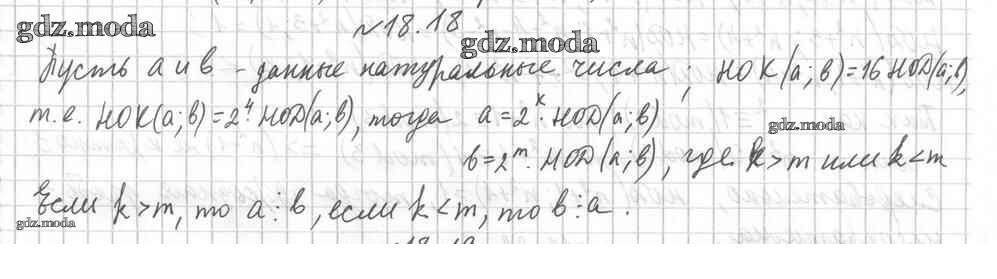 №18.18
gdz.moda
gdz.moda
Пусть a и b - данные натуральные числа; НОК(a;b)=16 НОД(a;b),
т.е. НОК(a;b)=2⁴·НОД(a;b), тогда a=2ᵏ·НОД(a;b)
gdz.moda
b=2ᵐ·НОД(a;b), где k>m или k<m
Если k>m, то a⋮b, если k<m, то b⋮a.
gdz.moda